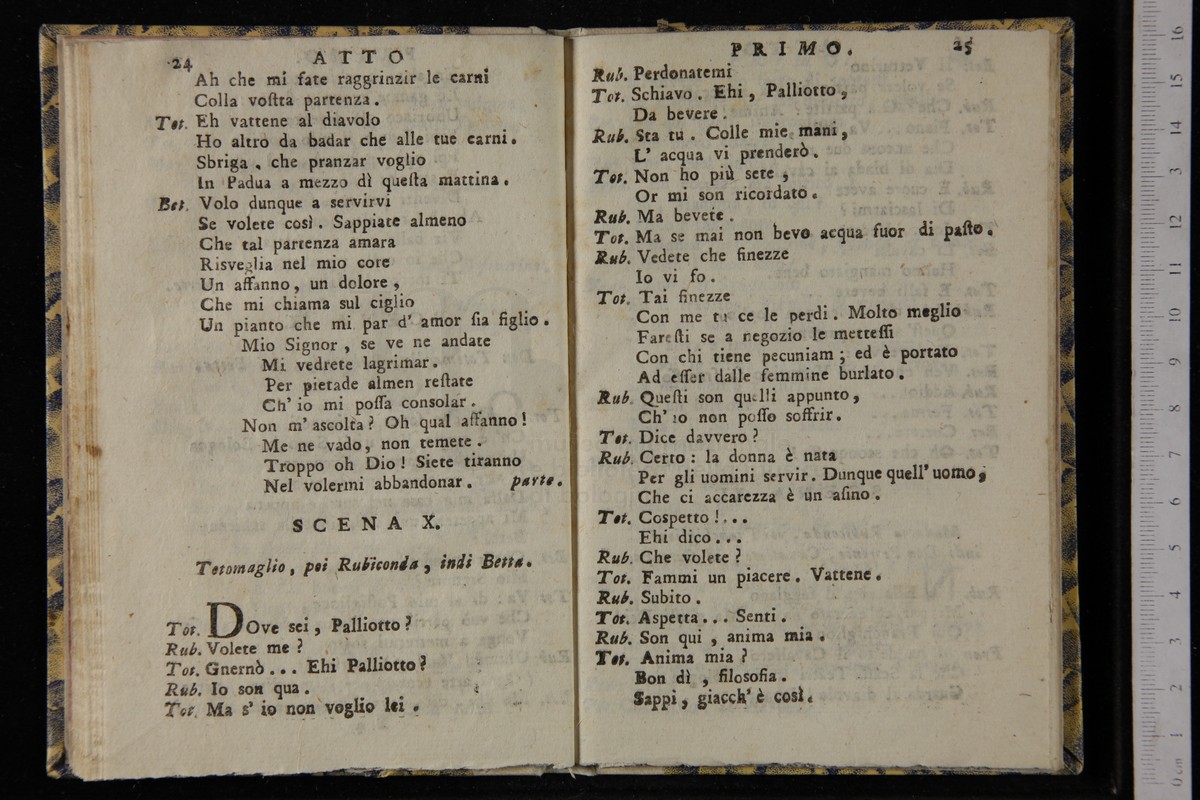 24 ATTO
Ah che mi fate raggrinzir le carni
Colla voſtra partenza.
Tot. Eh vattene al diavolo
Ho altro da badar che alle tue carni.
Sbriga, che pranzar voglio
In Padua a mezzo dì queſta mattina.
Bet. Volo dunque a servirvi
Se volete così. Sappiate almeno
Che tal partenza amara
Risveglia nel mio core
Un affanno, un dolore,
Che mi chiama sul ciglio
Un pianto che mi par d' amor ſia figlio.
Mio Signor, se ve ne andate
Mi vedrete lagrimar.
Per pietade almen reſtate
Ch' io mi poſſa consolar.
Non m' ascolta? Oh qual affanno!
Me ne vado, non temete.
Troppo oh Dio! Siete tiranno
Nel volermi abbandonar. parte.
SCENA X.
Totomaglio, poi Rubiconda, indi Betta.
Tot. DOve sei, Palliotto?
Rub. Volete me?
Tot. Gnernò... Ehi Palliotto?
Rub. Io son qua.
Tot. Ma s' io non voglio lei.
PRIMO. 25
Rub. Perdonatemi
Tot. Schiavo. Ehi, Palliotto,
Da bevere.
Rub. Sta tu. Colle mie mani,
L' acqua vi prenderò.
Tot. Non ho più sete,
Or mi son ricordato.
Rub. Ma bevete.
Tot. Ma se mai non bevo acqua fuor di paſto.
Rub. Vedete che finezze
Io vi fo.
Tot. Tai finezze
Con me tu ce le perdi. Molto meglio
Fareſti se a negozio le metteſſi
Con chi tiene pecuniam; ed è portato
Ad eſſer dalle femmine burlato.
Rub. Queſti son quelli appunto,
Ch' io non poſſo soffrir.
Tot. Dice davvero?
Rub. Certo: la donna è nata
Per gli uomini servir. Dunque quell' uomo,
Che ci accarezza è un aſino.
Tot. Cospetto!...
Ehi dico...
Rub. Che volete?
Tot. Fammi un piacere. Vattene.
Rub. Subito.
Tot. Aspetta... Senti.
Rub. Son qui, anima mia.
Tot. Anima mia?
Bon dì, filosofia.
Sappi, giacch' è così.